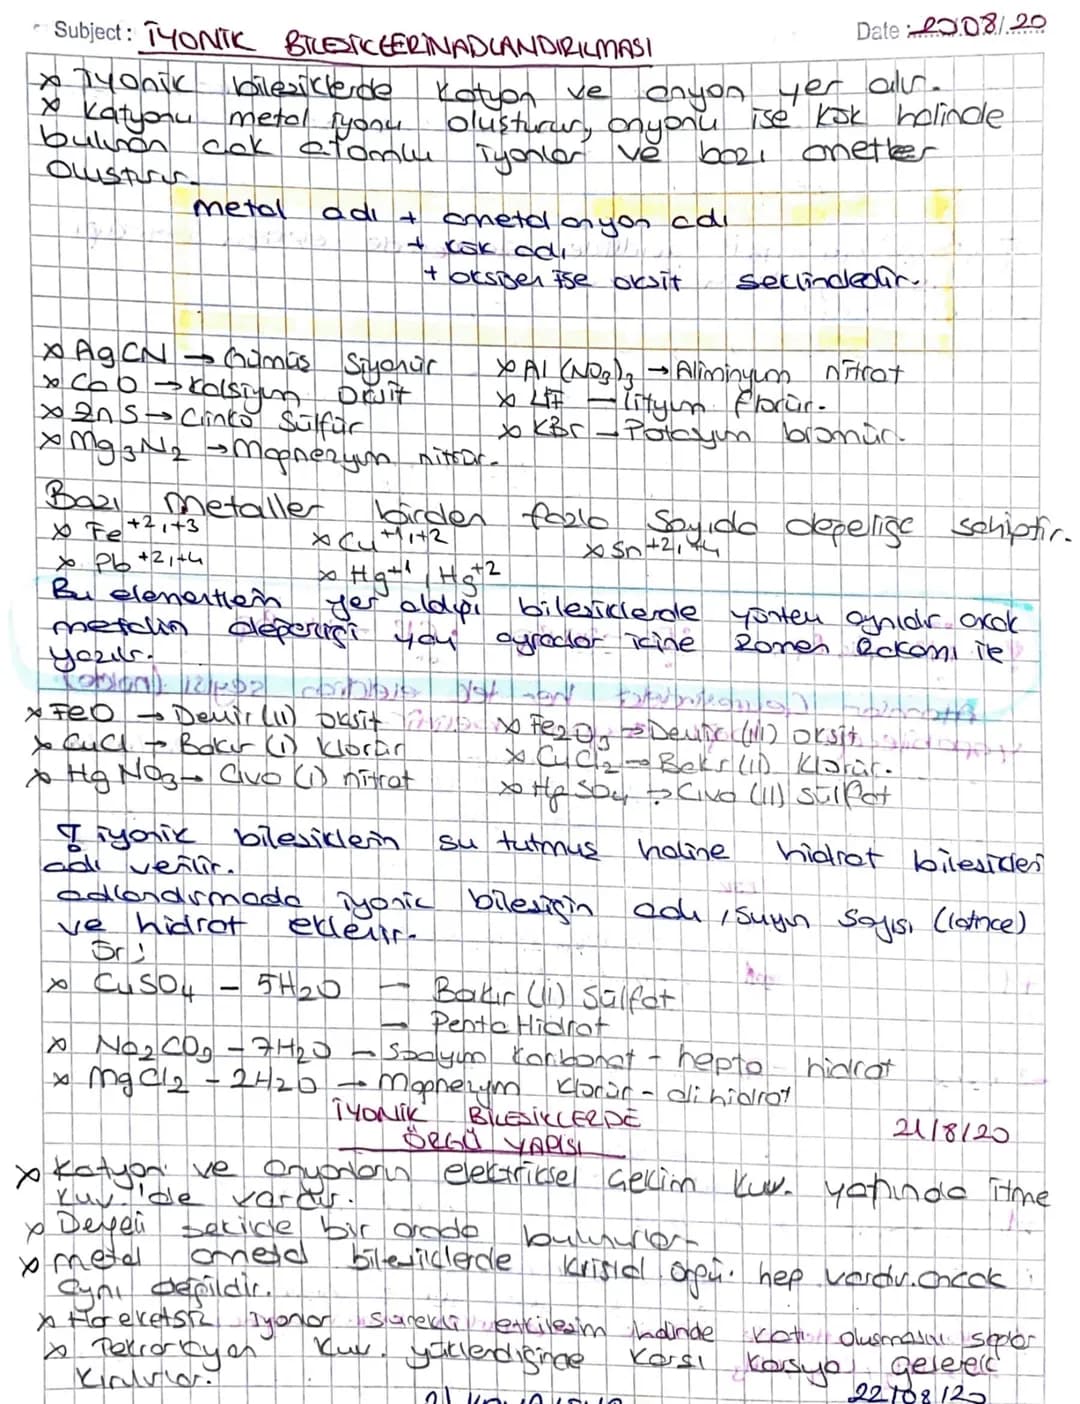 Subject: İYONİK BİLEŞİKLERİN ADLANDIRILMASI
Date: 20.08/.20
x İyonik bileşiklerde katyon ve anyon yer alır.
x Katyonu metal iyonu oluşturur, anyonu ise kök halinde
bulunan çok atomlu iyonlar ve bazı ametller
oluşturur.
metal adı + ametal anyon adı
+ kök adı
+ oksijen ise oksit şeklindedir.
x AgCN → Gümüş Siyanür
x Al(NO3)3 → Aliminyum nitrat
x CaO → Kalsiyum Oksit
x LiF → lityum florür.
x ZnS → Çinko Sülfür
x KBr → Potasyum bromür.
x Mg3N2 → Magnezyum nitrür.
Bazı metaller birden fazla sayıda değerliğe sahiptir.
x Fe+2,+3
x Cu+1,+2
x Sn+2,+4
x Pb+2,+4
x Hg+1, Hg+2
Bu elementlerin yer aldığı bileşiklerde yöntem aynıdır ancak
metalin değerliği yay ayraçlar içine Romen Rakamı ile
yazılır.
x FeO → Demir (II) oksit
x Fe2O3 → Demir (III) oksit
x CuCl → Bakır (I) klorür
x CuCl2 → Bakır (II) Klorür.
x HgNO3 → Civa (I) nitrat
x HgSO4 → Civa (II) Sülfat
iyonik bileşiklerin su tutmuş haline hidrat bileşikleri
adı verilir.
adlandırmada iyonic bileşiğin adı, suyun sayısı (latince)
ve hidrat eklenir.
Ör;
x CuSO4 - 5H2O → Bakır (II) Sülfat
→ Penta Hidrat
x Na2CO3 - 7H2O → Sodyum Karbonat - hepta hidrat
x MgCl2 - 2H2O → Magnezyum klorür - dihidrat
İYONİK BİLEŞİKLERDE
ÖRGÜ YAPISI
21/8/20
x Katyon ve Anyonların elektriksel Çekim kuv. yanında itme
kuv. 'de vardır.
x Dengeli şekilde bir arada bulunurlar
x metal ametal bileşiklerde kristal örgü. hep vardır.ancak
aynı değildir.
x Hareketsiz iyonlar sürekli etkileşim halinde katı oluşmasını sağlar
x Tekrarlayan kuv. yüklendiğinde karşı karşıya gelerek
kırılırlar.
22/08/20